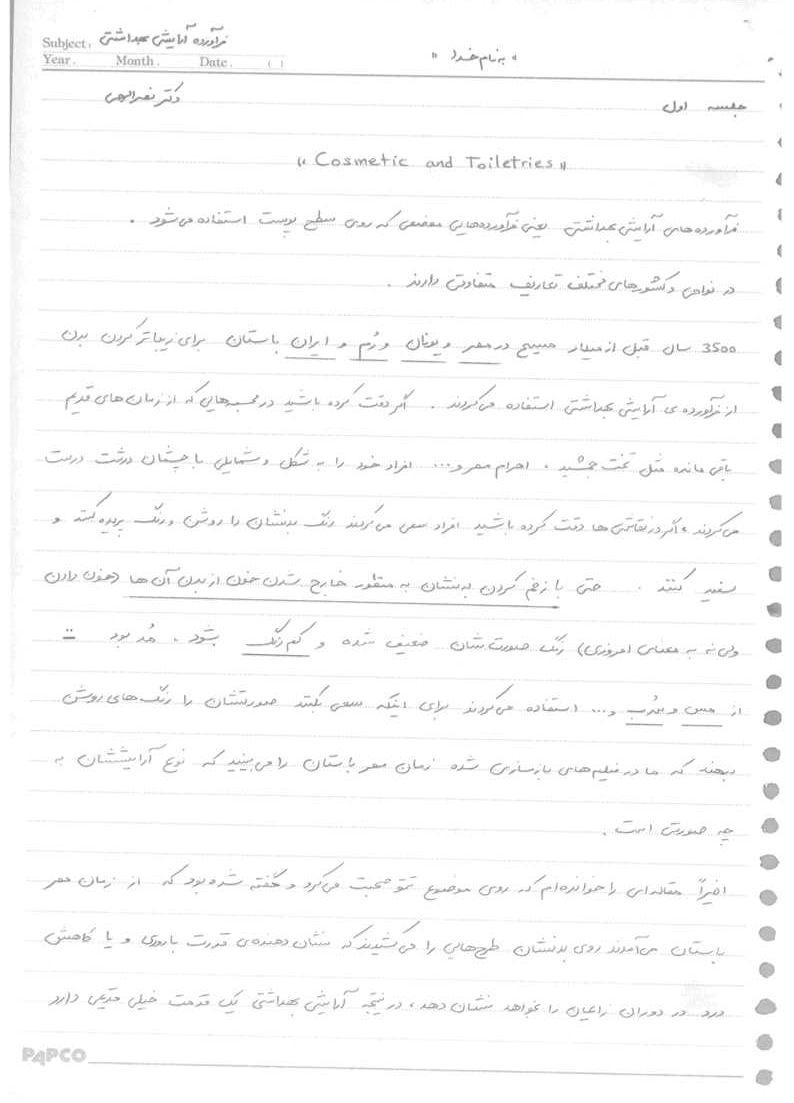 Subject: فرآورده آرایشی بهداشتی
Year. Month. Date. ( )
« به نام خدا »
جلسه اول دکتر نصرالهی
« Cosmetic and Toiletries »
فرآورده‌های آرایشی بهداشتی یعنی فرآورده‌هایی موضعی که روی سطح پوست استفاده می‌شود .
در نواحی و کشورهای مختلف تعاریف متفاوتی دارند .
3500 سال قبل از میلاد مسیح در مصر و یونان و رُم و ایران باستان برای زیباتر کردن بدن
از فرآورده ی آرایشی بهداشتی استفاده می‌کردند . اگر دقت کرده باشید در مجسمه‌هایی که از زمان های قدیم
باقی مانده مثل تخت جمشید ، اهرام مصر و... افراد خود را به شکل و شمایلی با چشمان درشت درست
می‌کردند ، اگر در نقاشی ها دقت کرده باشید افراد سعی می‌کردند رنگ بدنشان را روشن و رنگ پریده کنند و
سفید کنند . حتی با زخم کردن بدنشان به منظور خارج شدن خون از بدن آن ها (خون دادن
ولی نه به معنای امروزی) رنگ صورت‌شان ضعیف شده و کم رنگ بشود . مُد بود =
از مس و سُرب و... استفاده می‌کردند برای اینکه سعی بکنند صورتشان را رنگ‌های روش
بدهند که ما در فیلم‌های بازسازی شده زمان مصر باستان را می‌بینید که نوع آرایششان به
چه صورتی است .
اخیراً مقاله‌ای را خوانده‌ام که روی موضوع تتو صحبت می‌کرد و گفته شده بود که از زمان مصر
باستان می‌آمدند روی بدنشان طرح‌هایی را می‌کشیدند که نشان دهنده‌ی قدرت باروری و یا کاهش
درد در دوران زایمان را خواهد نشان دهد ، در نتیجه آرایشی بهداشتی یک قدمت خیلی قدیمی دارد
PAPCO